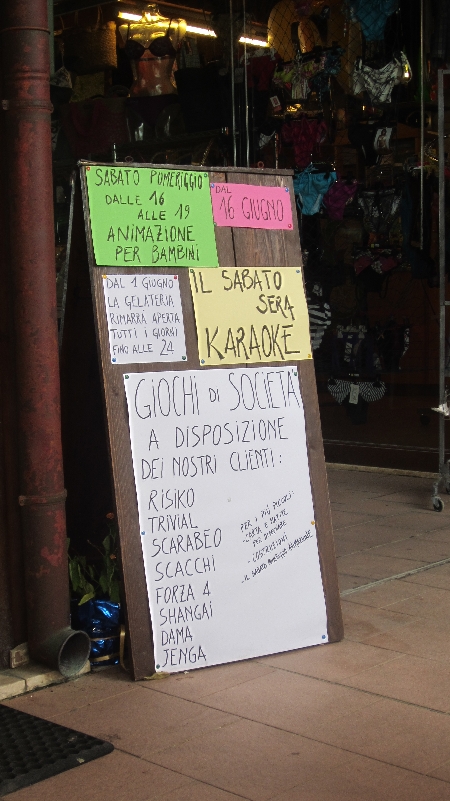 SABATO POMERIGGIO
DALLE 16
ALLE 19
ANIMAZIONE
PER BAMBINI
DAL
16 GIUGNO
DAL 1 GIUGNO
LA GELATERIA
RIMARRÀ APERTA
TUTTI I GIORNI
FINO ALLE 24
IL SABATO
SERA
KARAOKE
GIOCHI DI SOCIETÀ
A DISPOSIZIONE
DEI NOSTRI CLIENTI:
RISIKO
TRIVIAL
SCARABEO
SCACCHI
FORZA 4
SHANGAI
DAMA
JENGA
PER I PIÙ PICCOLI:
CARTA E MATITE
PER DISEGNARE
- COSTRUZIONI
- IL SABATO POMERIGGIO ANIMAZIONE